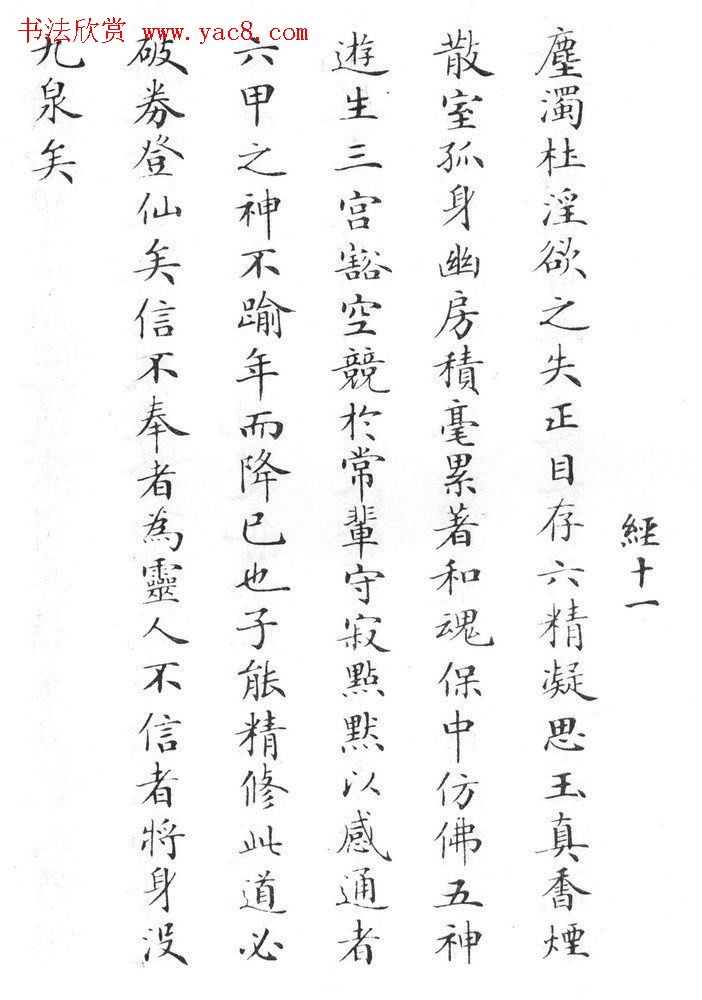 书法欣赏 www.yac8.com
經十一
塵濁杜淫欲之失正目存六精凝思玉真香煙
散室孤身幽房積毫累著和魂保中仿佛五神
遊生三宮豁空競於常輩守寂點默以感通者
六甲之神不踰年而降已也子能精修此道必
破券登仙矣信不奉者為靈人不信者將身沒
九泉矣